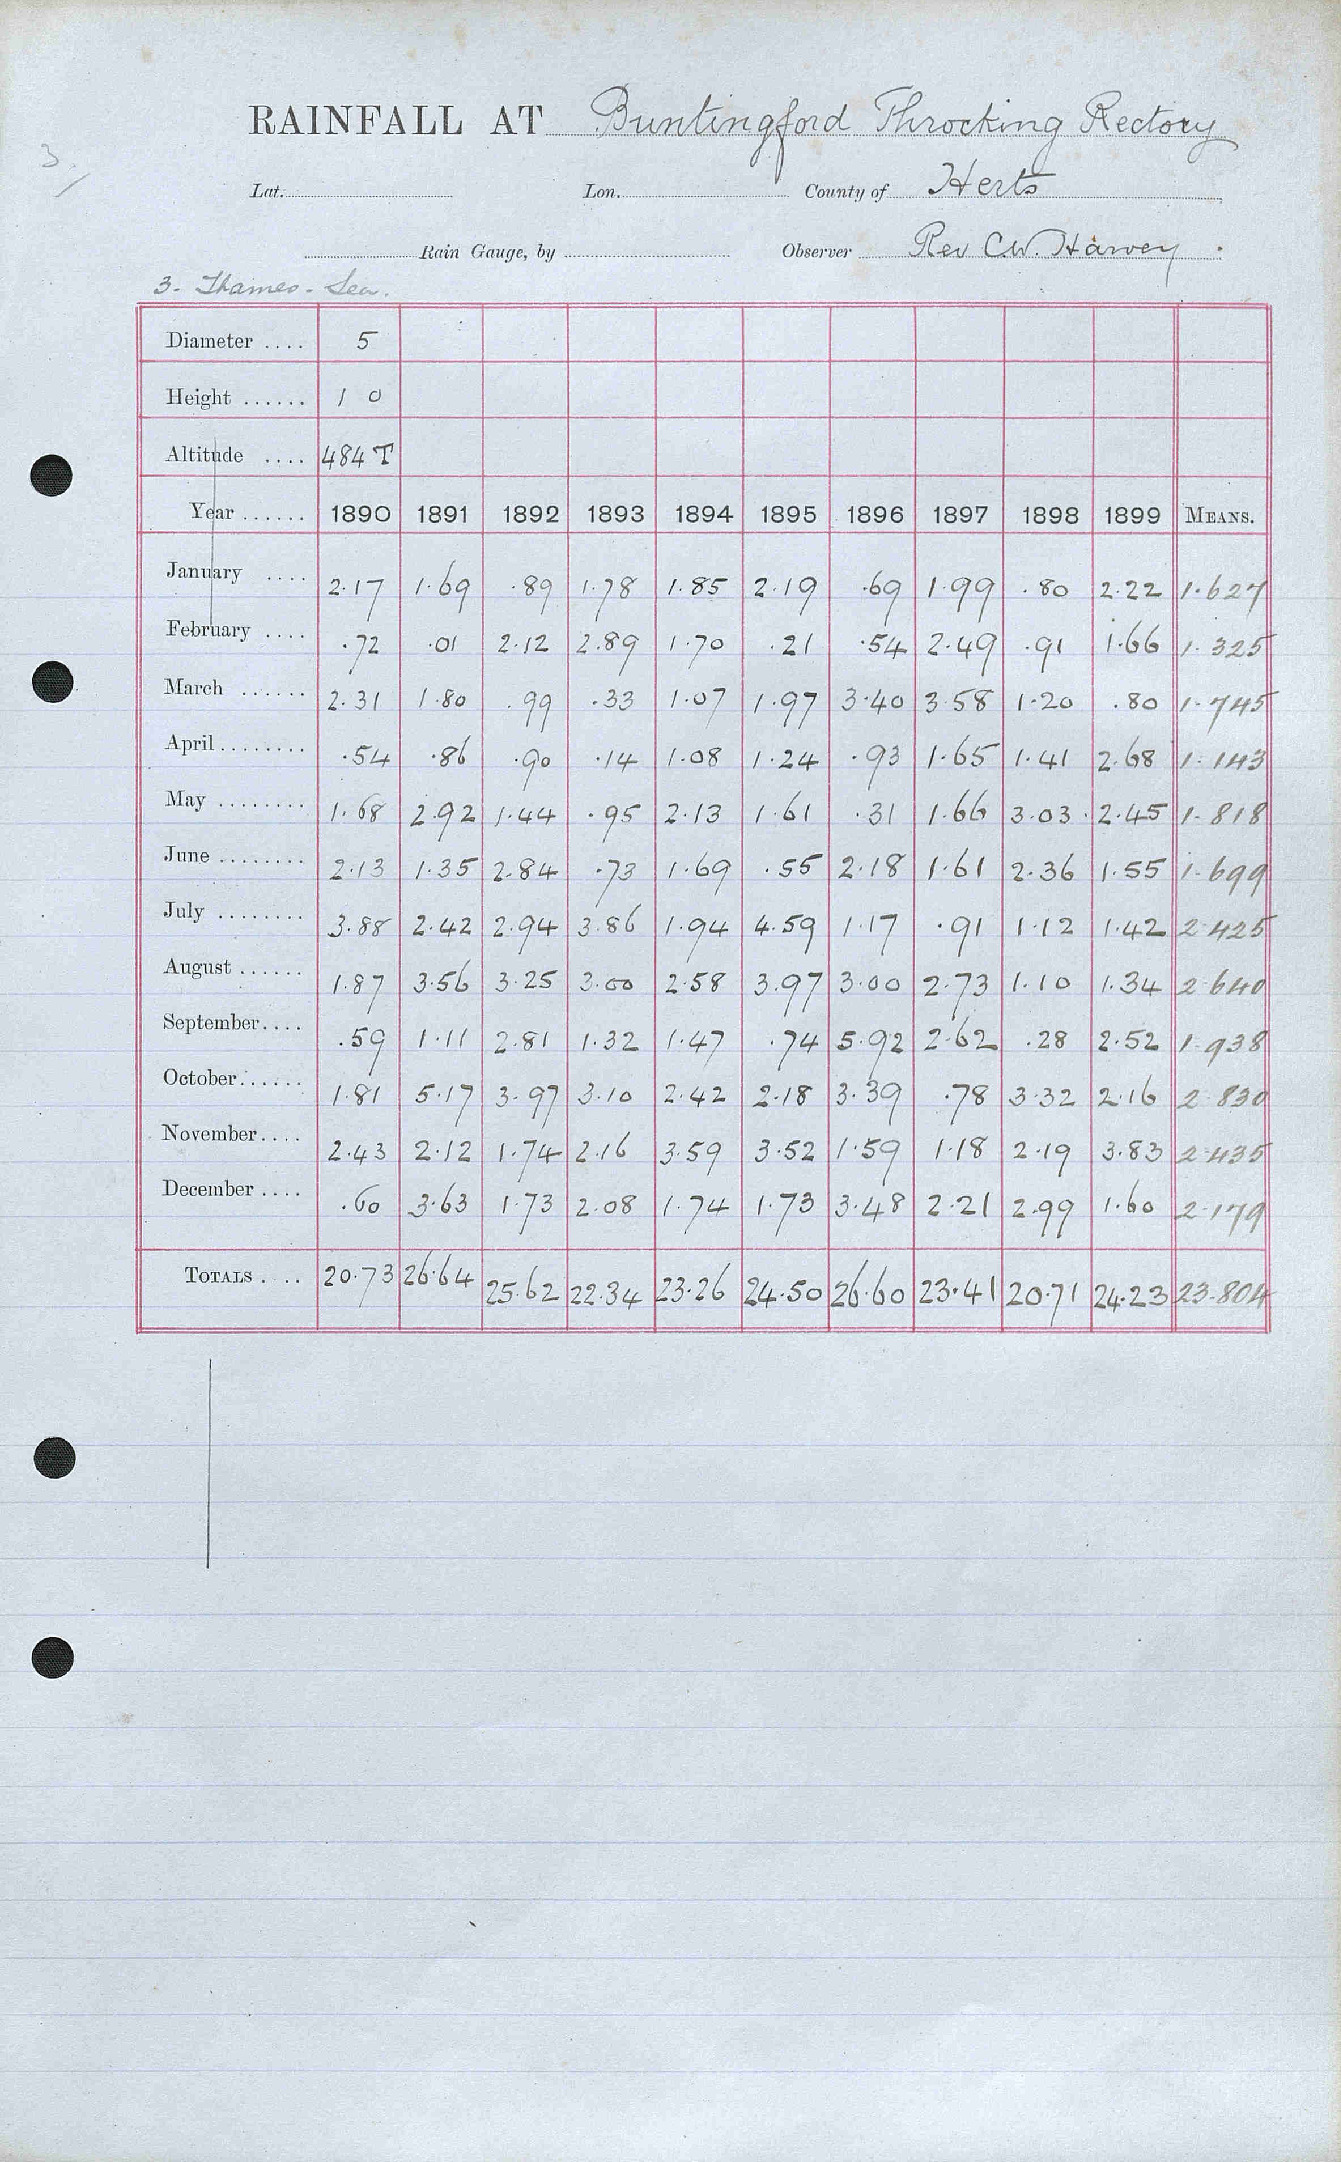 RAINFALL AT Buntingford Throcking Rectory
3.
Lat. Lon. County of Herts
Rain Gauge, by Observer Rev C.W. Harvey
3- Thames - Sea.
Diameter .... 5
Height ...... 1 0
Altitude .... 484 T
Year ...... 1890 1891 1892 1893 1894 1895 1896 1897 1898 1899 MEANS.
January .... 2.17 1.69 .89 1.78 1.85 2.19 .69 1.99 .80 2.22 1.627
February .... .72 .01 2.12 2.89 1.70 .21 .54 2.49 .91 1.66 1.325
March ...... 2.31 1.80 .99 .33 1.07 1.97 3.40 3.58 1.20 .80 1.745
April ........ .54 .86 .90 .14 1.08 1.24 .93 1.65 1.41 2.68 1.143
May ........ 1.68 2.92 1.44 .95 2.13 1.61 .31 1.66 3.03 2.45 1.818
June ........ 2.13 1.35 2.84 .73 1.69 .55 2.18 1.61 2.36 1.55 1.699
July ........ 3.88 2.42 2.94 3.86 1.94 4.59 1.17 .91 1.12 1.42 2.425
August ...... 1.87 3.56 3.25 3.00 2.58 3.97 3.00 2.73 1.10 1.34 2.640
September .... .59 1.11 2.81 1.32 1.47 .74 5.92 2.62 .28 2.52 1.938
October ...... 1.81 5.17 3.97 3.10 2.42 2.18 3.39 .78 3.32 2.16 2.830
November .... 2.43 2.12 1.74 2.16 3.59 3.52 1.59 1.18 2.19 3.83 2.435
December .... .60 3.63 1.73 2.08 1.74 1.73 3.48 2.21 2.99 1.60 2.179
TOTALS .... 20.73 26.64 25.62 22.34 23.26 24.50 26.60 23.41 20.71 24.23 23.804